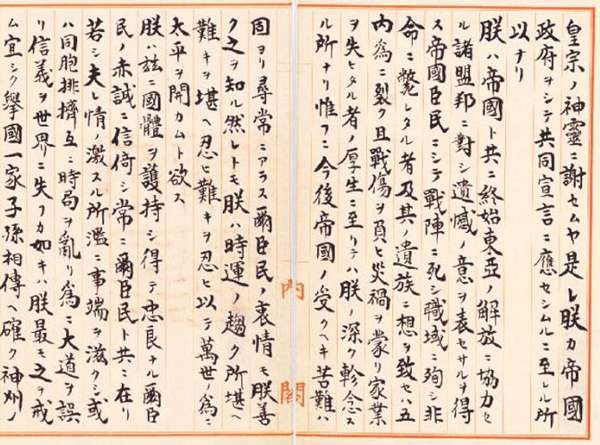 皇宗ノ神靈ニ謝セムヤ是レ朕カ帝國
政府ヲシテ共同宣言ニ應セシムルニ至レル所
以ナリ
朕ハ帝國ト共ニ終始東亞ノ解放ニ協力セ
ル諸盟邦ニ對シ遺憾ノ意ヲ表セサルヲ得
ス帝國臣民ニシテ戰陣ニ死シ職域ニ殉シ非
命ニ斃レタル者及其ノ遺族ニ想ヲ致セハ五
内爲ニ裂ク且戰傷ヲ負ヒ災禍ヲ蒙リ家業
ヲ失ヒタル者ノ厚生ニ至リテハ朕ノ深ク軫念ス
ル所ナリ惟フニ今後帝國ノ受クヘキ苦難ハ
内閣
固ヨリ尋常ニアラス爾臣民ノ衷情モ朕善
ク之ヲ知ル然レトモ朕ハ時運ノ趨ク所堪ヘ
難キヲ堪ヘ忍ヒ難キヲ忍ヒ以テ萬世ノ爲ニ
太平ヲ開カムト欲ス
朕ハ玆ニ國體ヲ護持シ得テ忠良ナル爾臣
民ノ赤誠ニ信倚シ常ニ爾臣民ト共ニ在リ
若シ夫レ情ノ激スル所濫ニ事端ヲ滋クシ或
ハ同胞排擠互ニ時局ヲ亂リ爲ニ大道ヲ誤
リ信義ヲ世界ニ失フカ如キハ朕最モ之ヲ戒
ム宜シク擧國一家子孫相傳ヘ確ク神州ノ